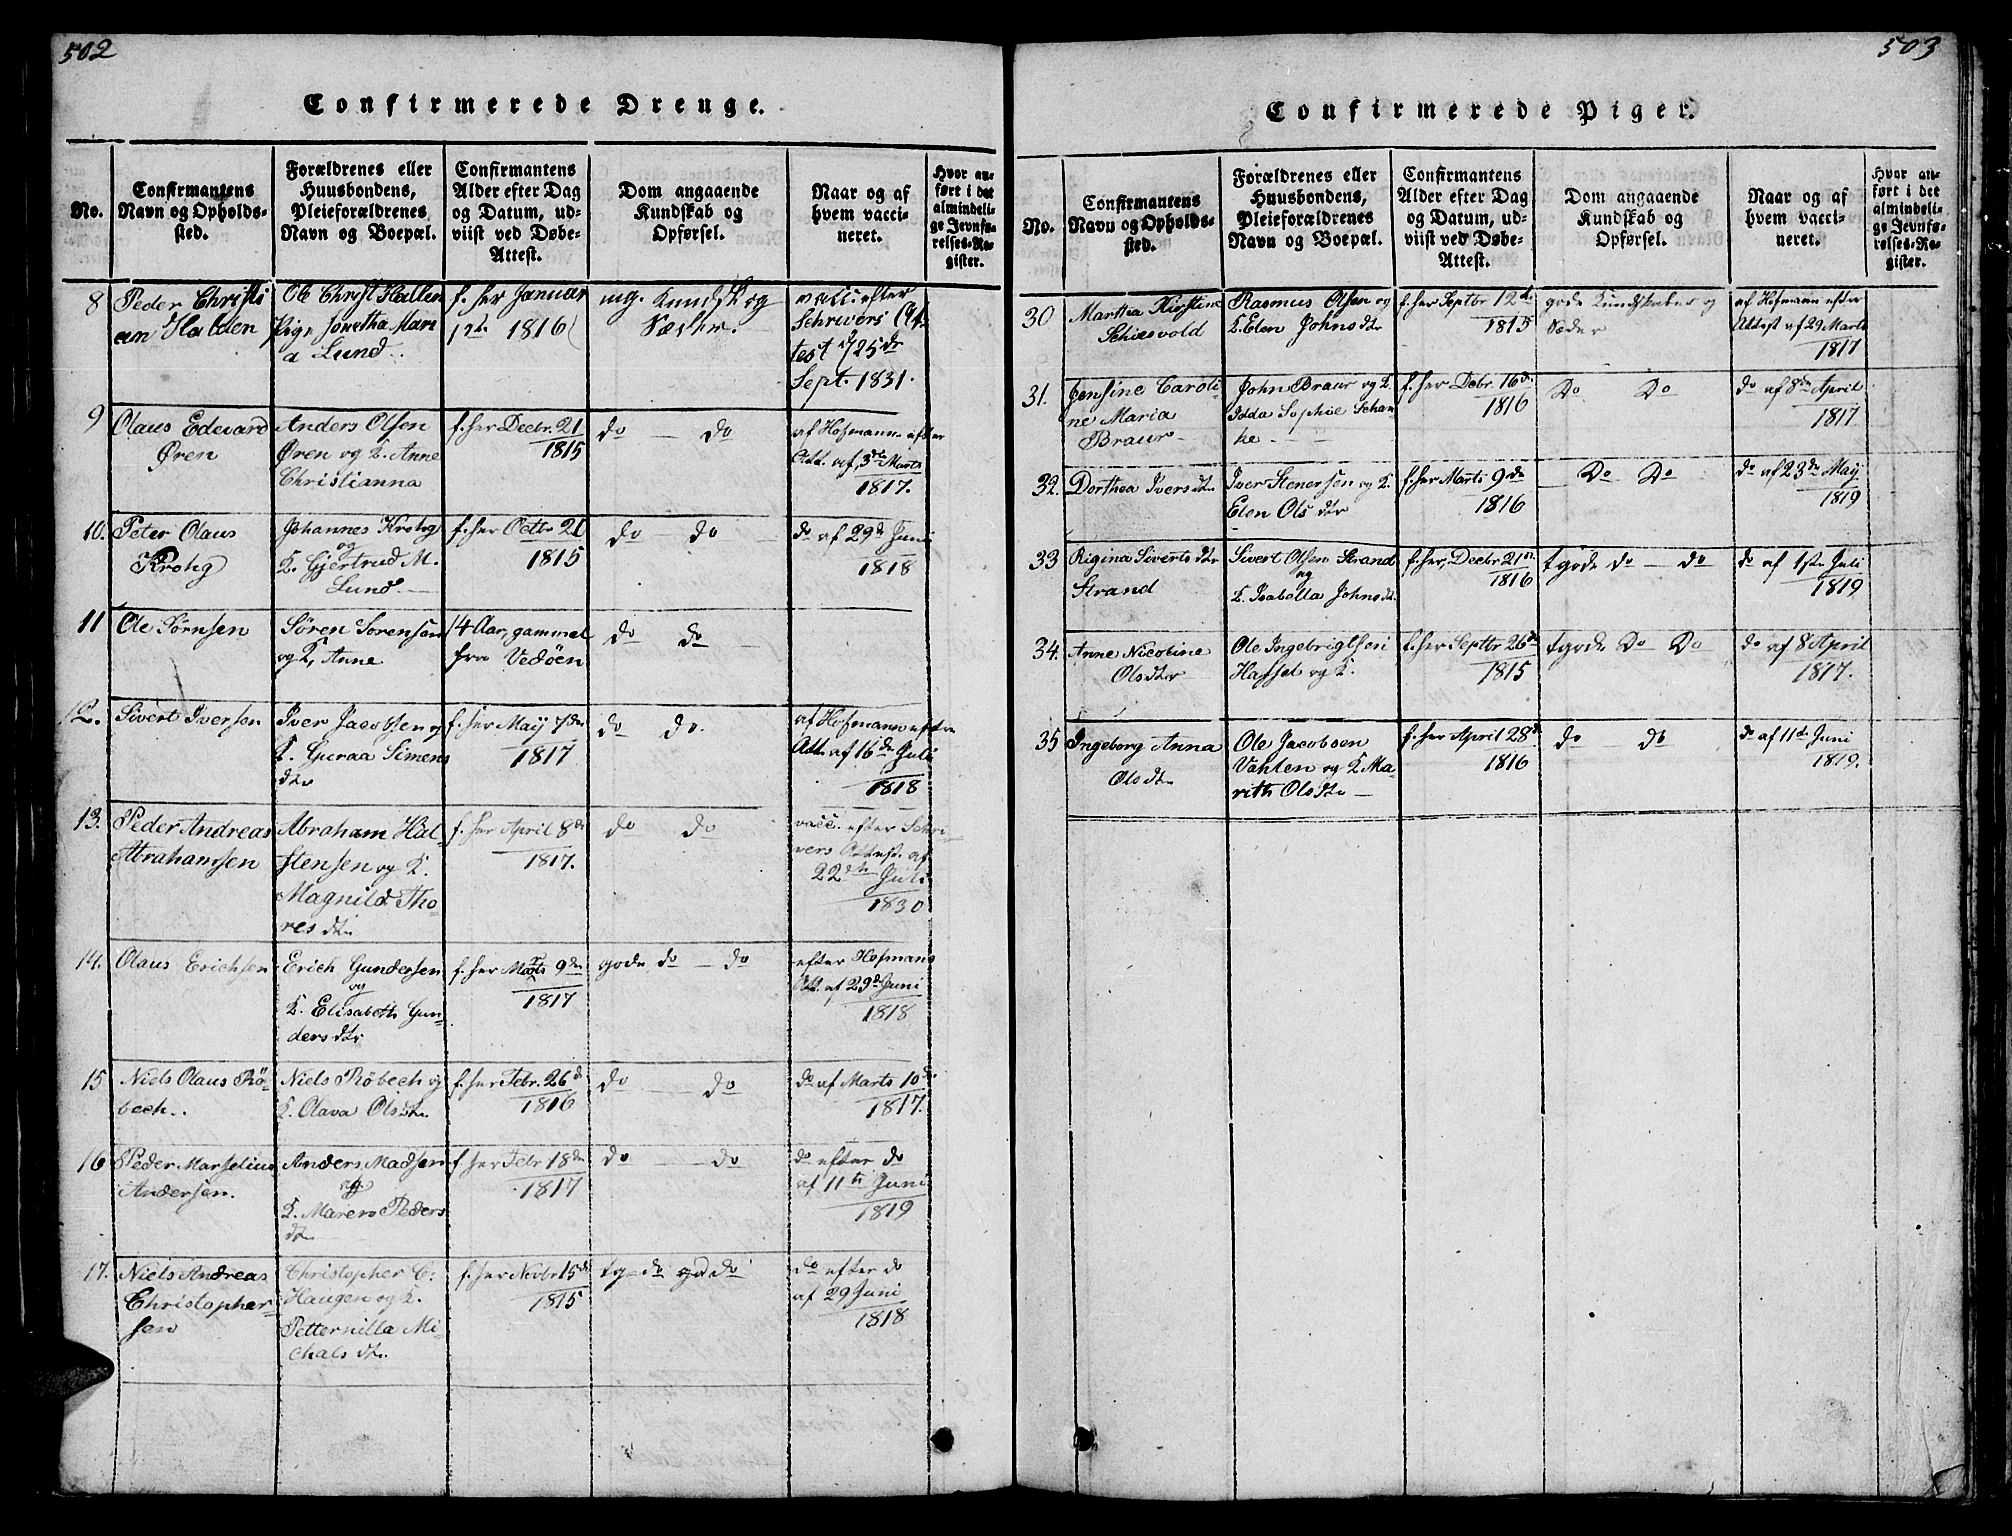 502
Confirmerede Drenge.
No.
Confirmantens
Navn og Opholds-
sted.
Forældrenes eller
Huusbondens,
Pleieforældrenes
Navn og Boepæl.
Confirmantens
Alder efter Dag
og Datum, ud-
viist ved Døbe-
Attest.
Dom angaaende
Kundskab og
Opførsel.
Naar og af
hvem vacci-
neret.
Hvor an-
ført i det
almindeli-
ge Jevnfø-
relses-Re-
gister.
8
Peder Christi
an Halden
Ole Christ Hallen
Pige Jonetha Mari
a Lund.
f. her Januar
1816
mg. Kundsk og
Sæder.
vacc. efter
Schrivers At-
test 25de
Sept. 1831.
9
Olaus Edevard
Øren
Anders Olsen
Øren og K. Anne
Christianna
f. her Decbr. 21
1815
do - do
af Hofmann efter
Att. af 3de Marts
1817.
10.
Peter Olaus
Krohg
Johannes Krohg
og
K. Gjertrud M.
Lund.
f. her Octbr 21
1815
do - do
do af 29de Juni
1818
11
Ole Sørnsen
Søren Sorensen
og K. Anne
14 Aar gammel
fra Vedøen
do do
12.
Sivert Iversen
Iver Jacobsen og
K. Guraa Simens
dtr
f. her Maij 7de
1817
do do.
af Hofmann efter
Att. af 16de Juli
1818
13.
Peder Andreas
Abrahamsen
Abraham Hal-
stensen og K.
Magnild Tho-
res dtr
f. her April 8de
1817.
do do
vacc. efter Schri-
vers Attest af
22de Juli
1830
14.
Olaus Erichsen
Erich Gundersen
og
K. Elisabeth Gun-
ders dtr
f. her Marts 9de
1817
gode do - do
efter Hofmans
Att. af 29de Juni
1818
15
Niels Olaus Rö-
bech.
Niels Röbech og
K. Olava Olsdtr
f. her Febr. 26de
1816
do - do
do af Marts 10de
1817.
16
Peder Marselius
Andersen.
Anders Madsen
og
K. Maren Peders
dtr
f. her Febr 18de
1817
do - do
do efter do
af 11te Juni
1819
17.
Niels Andreas
Christopher-
sen
Christopher C:
Haugen og K.
Petternilla Mi-
chals dtr
f. her Novbr 15de
1815
tg do do
do efter do
af 29 Juni
1818
503
Confirmerede Piger.
No.
Confirmantens
Navn og Opholds-
sted.
Forældrenes eller
Huusbondens,
Pleieforældrenes
Navn og Boepæl.
Confirmantens
Alder efter Dag
og Datum, ud-
viist ved Døbe-
Attest.
Dom angaaende
Kundskab og
Opførsel.
Naar og af
hvem vacci-
neret.
Hvor an-
ført i det
almindeli-
ge Jevnfø-
relses-Re-
gister.
30
Marthea Kirstine
Schiesvold
Rasmus Olsen og
K. Elen Johnsdtr
f. her Septbr 12te
1815
gode Kundskaber og
Sæder
af Hofmann efter
Attest af 29 Marts
1817
31.
Jensine Caroli
ne Maria
Braur
John Braur og K.
Idda Sophie Schan
ke
f. her Debr. 16de
1816
do do
do af 8de April
1817
32.
Dorthea Ivers dtr
Iver Stenersen og K.
Elen Ols dtr
f. her Marts 9de
1816
do do
do af 23de Maij
1819
33
Rigina Siverts dtr
Strand
Sivert Olsen Strand
og
K. Isabella Johnsdtr
f. her, Decbr 21de
1816
tgode do - do
do af 1ste Juli
1819
34.
Anne Nicobine
Olsdtr
Ole Ingebrigtsen
Hassel og K.
f. her Septbr 26de
1815
tgode do do
do af 8 April
1817.
35
Ingeborg Anna
Olsdtr
Ole Jacobsen
Vahlen og K Ma-
rith Olsdtr
f. her April 28de
1816
do - do
do af 11te Juni
1819.